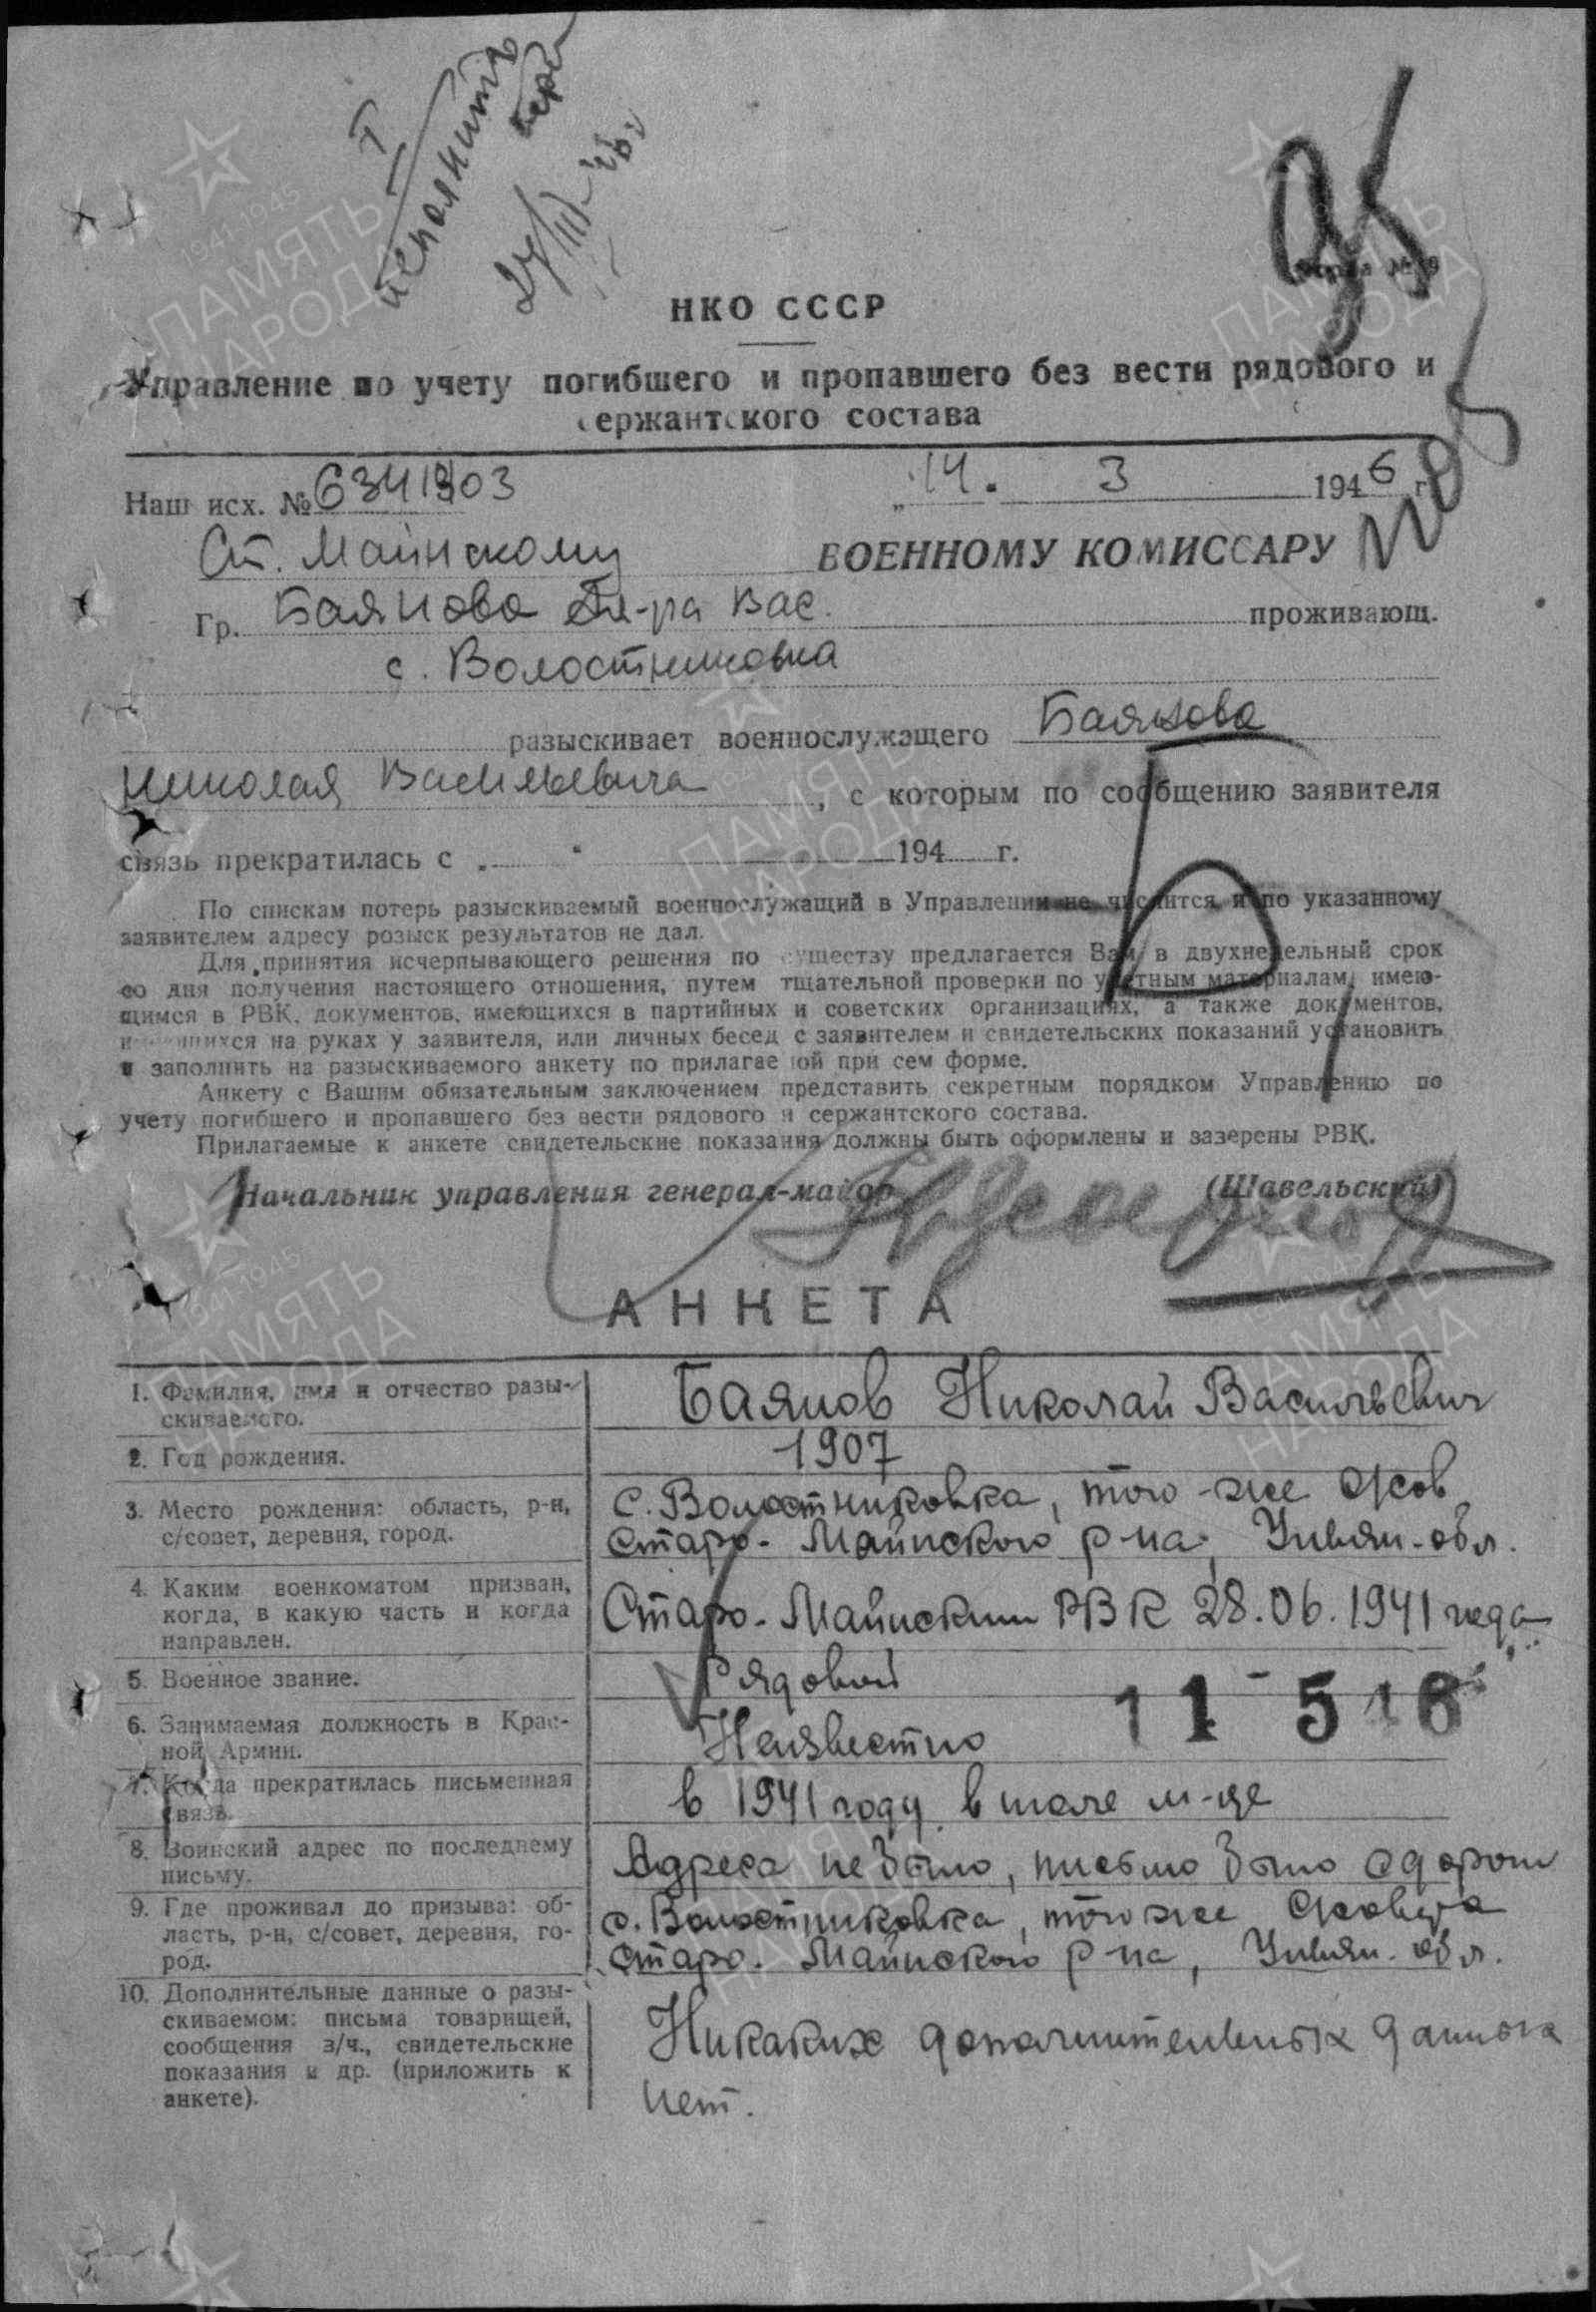 I
исполнить
27/III-46г
95
НКО СССР
Управление по учету погибшего и пропавшего без вести рядового и
сержантского состава
Наш исх. № 6341903
„14. 3 1946 г.
Ст. Майнскому ВОЕННОМУ КОМИССАРУ
Гр. Баянова Ал-ра Вас. проживающ.
с. Волостниковка
разыскивает военнослужащего Баянова
Николая Васильевича, с которым по сообщению заявителя
связь прекратилась с 194 г.
По спискам потерь разыскиваемый военнослужащий в Управлении не числится и по указанному
заявителем адресу розыск результатов не дал.
Для принятия исчерпывающего решения по существу предлагается Вам в двухнедельный срок
со дня получения настоящего отношения, путем тщательной проверки по учетным материалам, имею-
щимся в РВК, документов, имеющихся в партийных и советских организациях, а также документов,
имеющихся на руках у заявителя, или личных бесед с заявителем и свидетельских показаний установить
и заполнить на разыскиваемого анкету по прилагаемой при сем форме.
Анкету с Вашим обязательным заключением представить секретным порядком Управлению по
учету погибшего и пропавшего без вести рядового и сержантского состава.
Прилагаемые к анкете свидетельские показания должны быть оформлены и заверены РВК.
Начальник управления генерал-майор (Шавельский)
АНКЕТА
1. Фамилия, имя и отчество разы-
скиваемого.
Баянов Николай Васильевич
2. Год рождения.
1907
3. Место рождения: область, р-н,
с/совет, деревня, город.
с. Волостниковка, того-же с/сов
Старо-Майнского р-на, Ульян-обл.
4. Каким военкоматом призван,
когда, в какую часть и когда
направлен.
Старо-Майнским РВК 28.06.1941 года
5. Военное звание.
Рядовой
6. Занимаемая должность в Крас-
ной Армии.
Неизвестно
11-5 46
7. Когда прекратилась письменная
связь.
в 1941 году в июле м-це
8. Воинский адрес по последнему
письму.
Адреса не было, письмо было с дороги
9. Где проживал до призыва: об-
ласть, р-н, с/совет, деревня, го-
род.
с. Волостниковка, того же с/совета
Старо-Майнского р-на, Ульян. обл.
10. Дополнительные данные о разы-
скиваемом: письма товарищей,
сообщения з/ч., свидетельские
показания и др. (приложить к
анкете).
Никаких дополнительных данных
нет.
1941-1945
ПАМЯТЬ
НАРОДА